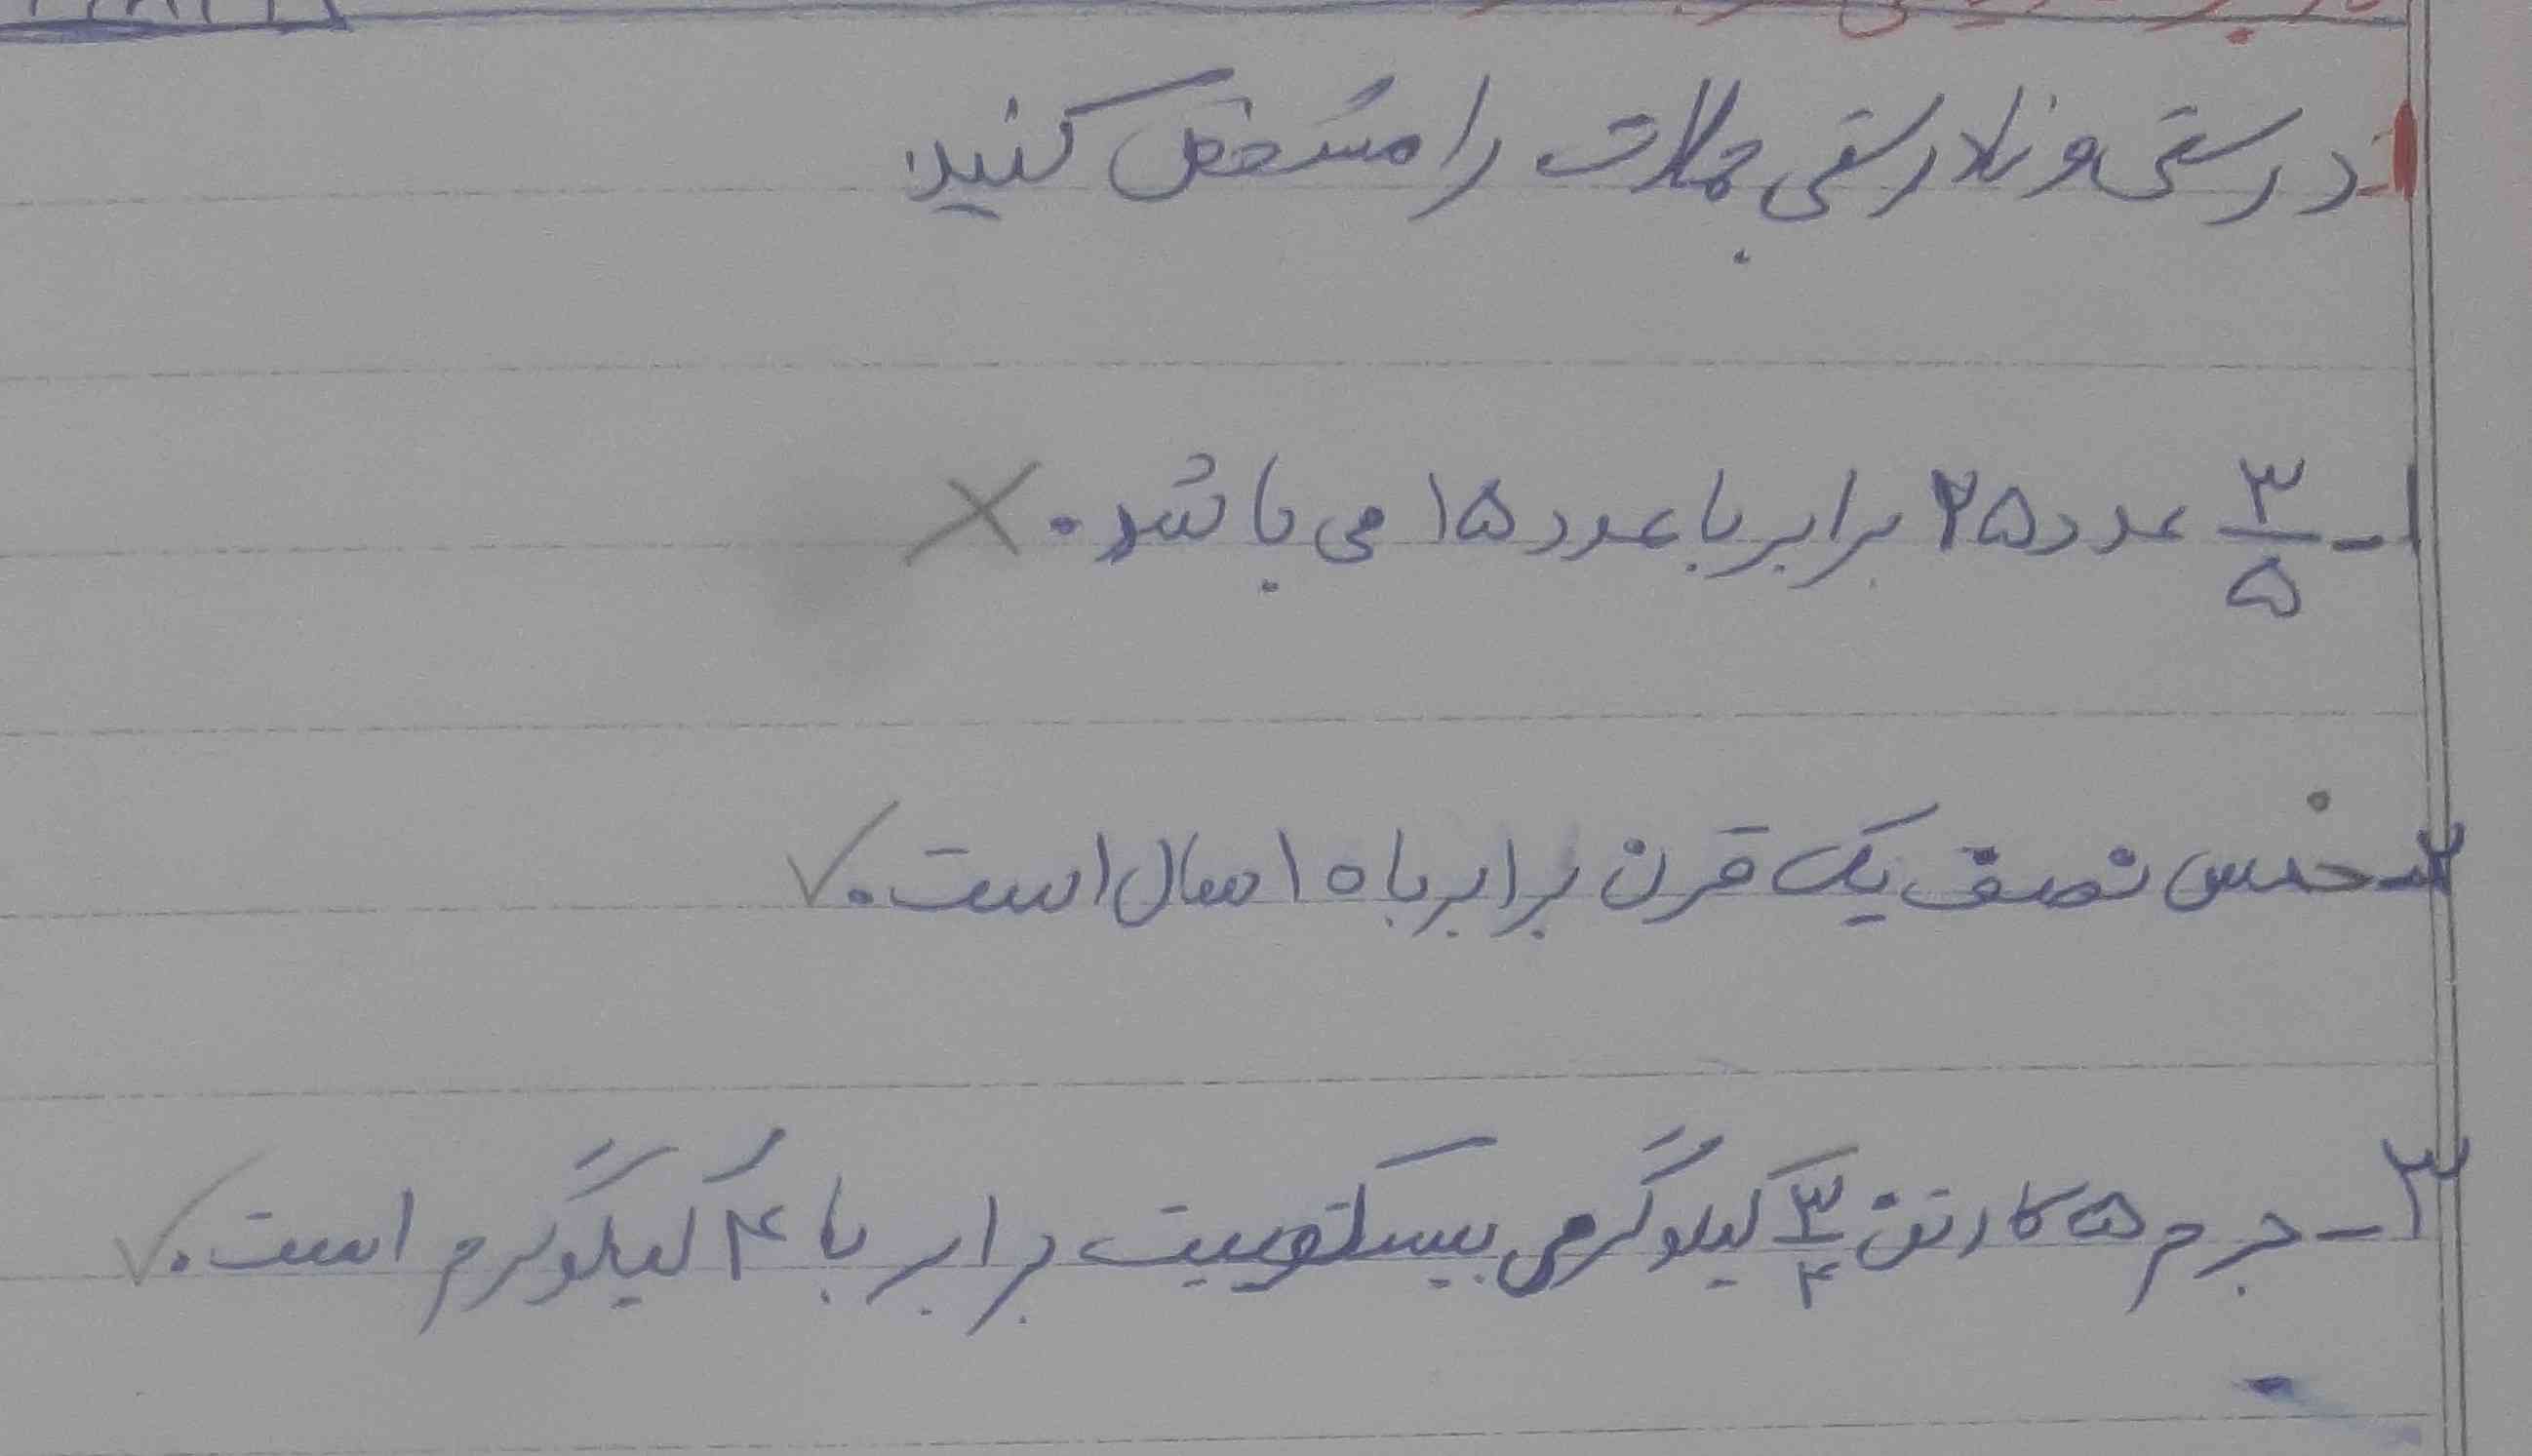 درستی و نادرستی جملات را مشخص کنید
۱- ۳/۵ عدد ۲۵ برابر با عدد ۱۵ می باشد. ×
۲- خمس نصف یک قرن برابر با ۱۰ سال است. ✓
۳- جرم ۵ کارتن ۳/۴ کیلوگرمی بیسکوییت برابر با ۴ کیلوگرم است. ✓